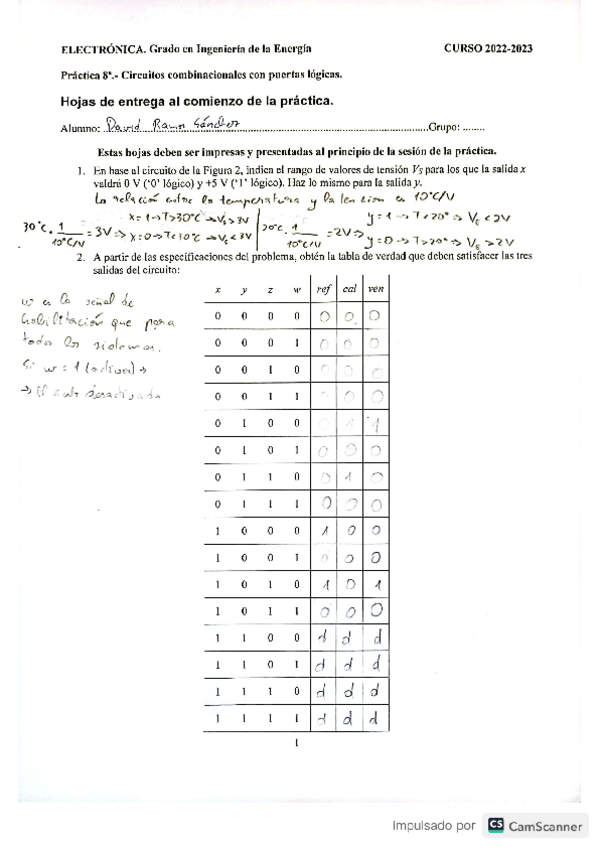 ELECTRÓNICA. Grado en Ingeniería de la Energía CURSO 2022-2023
Práctica 8ª.- Circuitos combinacionales con puertas lógicas.
Hojas de entrega al comienzo de la práctica.
Alumno: David Ramos Sánchez Grupo: ........
Estas hojas deben ser impresas y presentadas al principio de la sesión de la práctica.
1. En base al circuito de la Figura 2, indica el rango de valores de tensión Vs para los que la salida x
valdrá 0 V ('0' lógico) y +5 V ('1' lógico). Haz lo mismo para la salida y.
La relación entre la temperatura y la tension es 10°C/V
x=1→T>30°C → >3V y=1 → T<20° ⇒ <2V
30°C · 1/10°C/V = 3V ⇒ x=0→T<30°C → <3V 20°C · 1/10°C/V = 2V ⇒ y=0→T>20° ⇒ >2V
2. A partir de las especificaciones del problema, obtén la tabla de verdad que deben satisfacer las tres
salidas del circuito:
w es la señal de
habilitación que para
todos los sistemas.
Si w = 1 (activa) →
→ El desactivada
x y z w ref cal ven
0 0 0 0 0 0 0
0 0 0 1 0 0 0
0 0 1 0 0 0 0
0 0 1 1 0 0 0
0 1 0 0 0 1 1
0 1 0 1 0 0 0
0 1 1 0 0 1 0
0 1 1 1 0 0 0
1 0 0 0 1 0 0
1 0 0 1 0 0 0
1 0 1 0 1 0 1
1 0 1 1 0 0 0
1 1 0 0 d d d
1 1 0 1 d d d
1 1 1 0 d d d
1 1 1 1 d d d
1
Impulsado por CS CamScanner